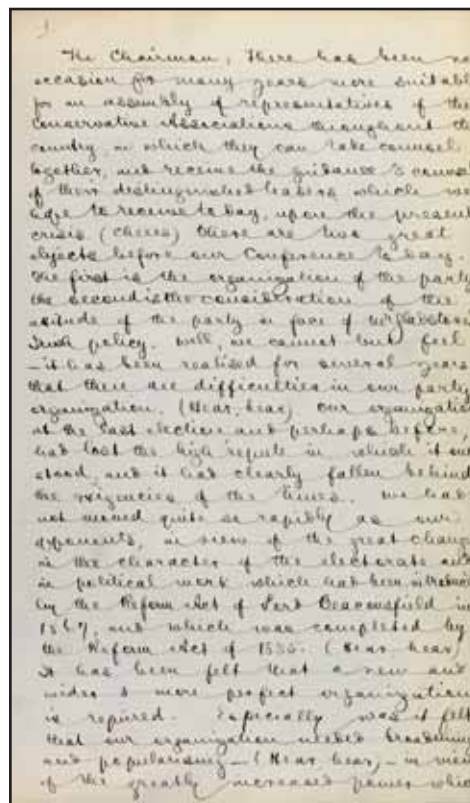 1
The Chairman, There has been no
occasion for many years more suitable
for an assembly of representatives of the
Conservative Associations throughout the
country, in which they can take counsel
together, and receive the guidance & counsel
of their distinguished leaders which we
hope to receive to day, upon the present
crisis (Cheers) there are two great
objects before our Conference to day.
the first is the organization of the party
the second is the consideration of the
attitude of the party in face of Mr Gladstone's
Irish policy. Well, we cannot but feel
- it has been realised for several years
that there are difficulties in our party
organization. (Hear, hear) Our organization
at the last election and perhaps before,
had lost the high repute in which it once
stood, and it had clearly fallen behind
the exigencies of the times. We had
not moved quite so rapidly as our
opponents, in view of the great change
in the character of the electorate and
in political work which had been introduced
by the Reform Act of Lord Beaconsfield in
1867, and which was completed by
the Reform Act of 1885. (Hear, hear)
It has been felt that a new and
wider & more perfect organization
is required. Especially was it felt
that our organization needed broadening
and popularising - (Hear hear) - in view
of the greatly increased power which